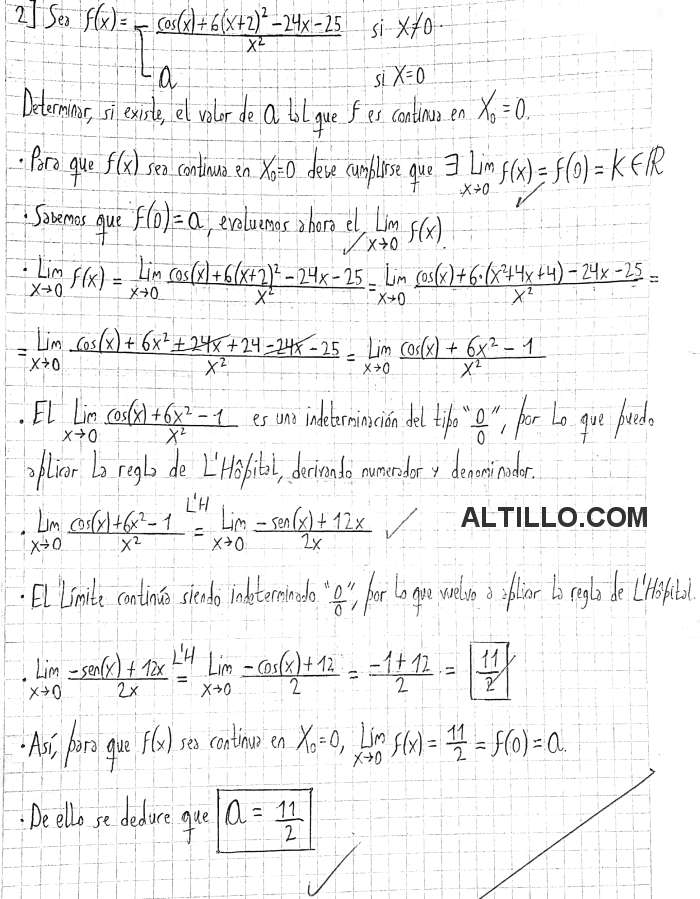 2] Sea f(x) = { (cos(x)+6(x+2)²-24x-25)/x² si x≠0.
a si x=0
Determinar, si existe, el valor de a tal que f es continua en X₀=0.
· Para que f(x) sea continua en X₀=0 debe cumplirse que ∃ Lim x→0 f(x) = f(0) = K ∈ ℝ ✓
· Sabemos que f(0)=a, evaluemos ahora el Lim x→0 f(x). ✓
· Lim x→0 f(x) = Lim x→0 (cos(x)+6(x+2)²-24x-25)/x² = Lim x→0 (cos(x)+6·(x²+4x+4)-24x-25)/x² =
= Lim x→0 (cos(x)+6x²+24x+24-24x-25)/x² = Lim x→0 (cos(x)+6x²-1)/x²
· El Lim x→0 (cos(x)+6x²-1)/x² es una indeterminación del tipo "0/0", por lo que puedo
aplicar la regla de L'Hôpital, derivando numerador y denominador.
· Lim x→0 (cos(x)+6x²-1)/x² L'H = Lim x→0 (-sen(x)+12x)/2x ✓
ALTILLO.COM
· El límite continúa siendo indeterminado "0/0", por lo que vuelvo a aplicar la regla de L'Hôpital.
· Lim x→0 (-sen(x)+12x)/2x L'H = Lim x→0 (-cos(x)+12)/2 = (-1+12)/2 = 11/2 ✓
· Así, para que f(x) sea continua en X₀=0, Lim x→0 f(x) = 11/2 = f(0) = a.
· De ello se deduce que a = 11/2 ✓